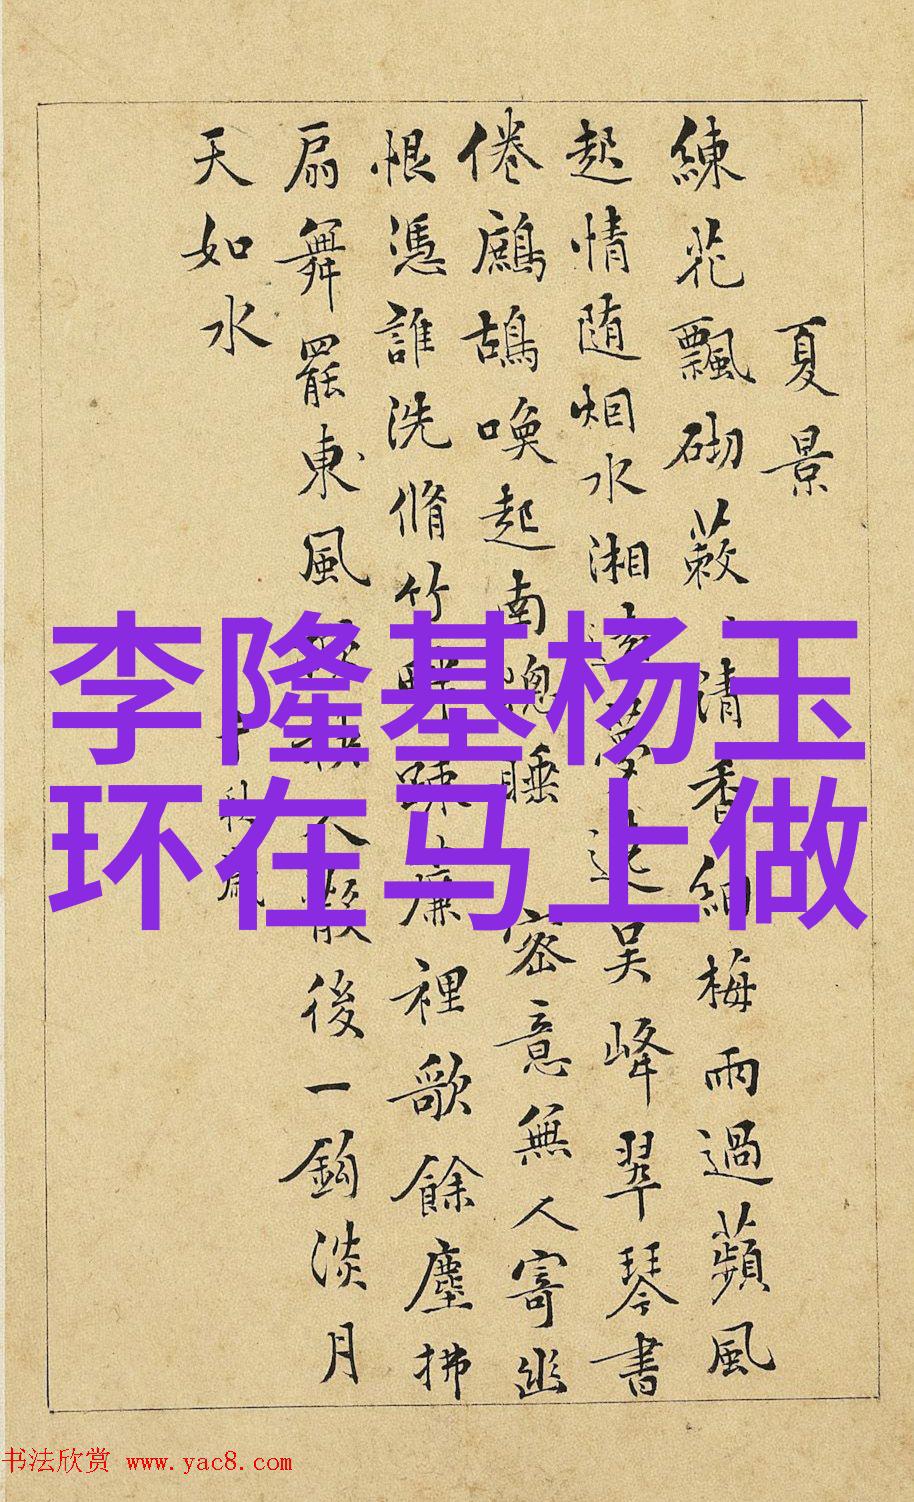 夏景
練花飄砌蔌〻清香細梅雨過蘋風
起情随烟水湘遠夢吴峰翠琴書
倦鷓鴣唤起南窻睡 密意無人寄幽
恨憑誰洗脩竹畔疎廉裡歌餘塵拂
扇舞罷東風人散後一鈎淡月
天如水
千秋歲
李隆基杨玉
环在马上做
书法欣赏 www.yac8.com